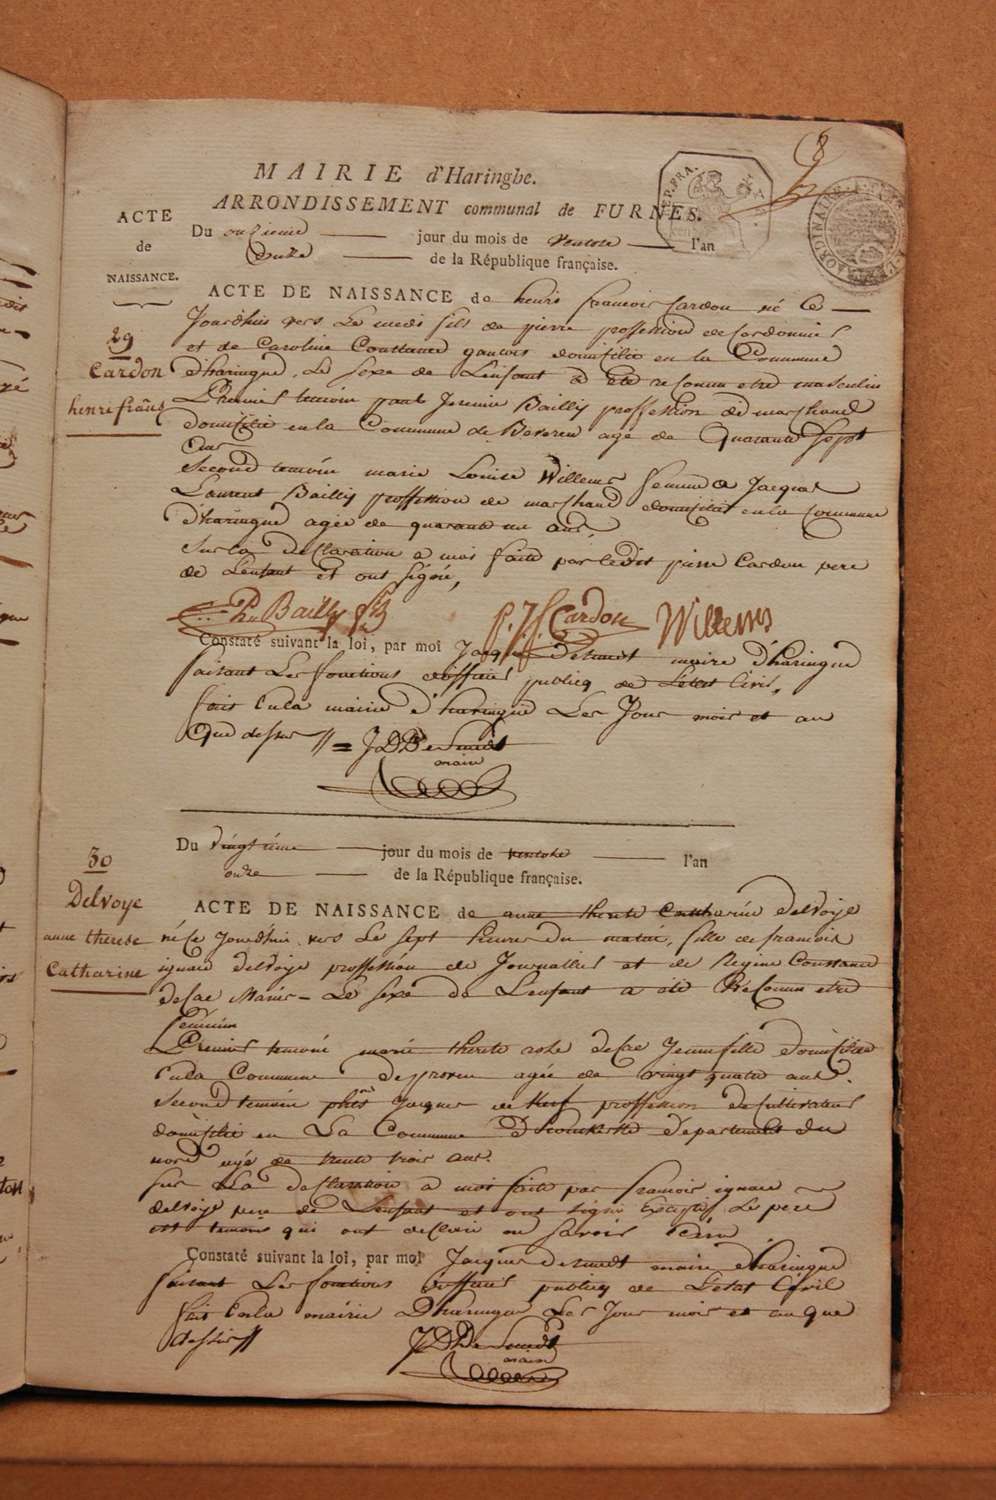 8
MAIRIE d'Haringhe.
ARRONDISSEMENT communal de FURNES.
ACTE
de
NAISSANCE.
Du onzieme jour du mois de ventose l'an
douze de la République française.
29
Cardon
henri franc̃s
ACTE DE NAISSANCE de henri francois Cardon né ce
Jourdhui vers Le midi fils de pierre proffession de Cordonnier
et de Caroline Constance gauwis domicilié en la Commune
d'haringue. Le sexe de Lenfant a été reconnu etre masculin
Premier temoin paul Jeremie Bailly proffession de marchand
domicilié en la Commune de Beveren age de quarante sept
ans
Second temoin marie Louise Willems femme a Jacque
Laurent Bailly proffession de marchand domicilié en la commune
d'haringue agée de quarante un ans
Sur la declaration a moi faite par ledit pierre Cardon pere
de Lenfant et ont signé,
Bailly P. J. Cardon Willems
Constaté suivant la loi, par moi Jacque Desmedt maire d'haringue
faisant Les fonctions d'officier publiq de L'etat Civil,
fait en la mairie d'haringue Les Jour mois et an
que dessus // = J D De Smedt
maire
30
Delvoye
anne therese
Catharine
Du vingtieme jour du mois de ventose l'an
onze de la République française.
ACTE DE NAISSANCE de anne therese Catharine delvoije
né ce Jourdhui vers Le sept heures du matin, fille de francois
ignace delvoije proffession de Journallier et de Regine Constance
desae Mariés - Le sexe de Lenfant a été Reconnu etre
feminin
Premier temoin marie therese desae Jeune fille domiciliée
en la Commune de proven agée de vingt quatre ans.
Second temoin Jacques de proffession de Cultivateur
domicilié en La Commune D departement du
nord agé de trente trois ans.
Sur La declaration a moi faite par francois ignace
delvoije pere de Lenfant et ont signé Excepté Le pere
temoin qui ont declaré ne savoir ecrire
Constaté suivant la loi, par moi Jacque desmedt maire d'haringue
faisant Les fonctions d'officier publiq de L'etat Civil
fait en la mairie D'haringue Les Jour mois et an que
dessus // J D De Smedt
maire